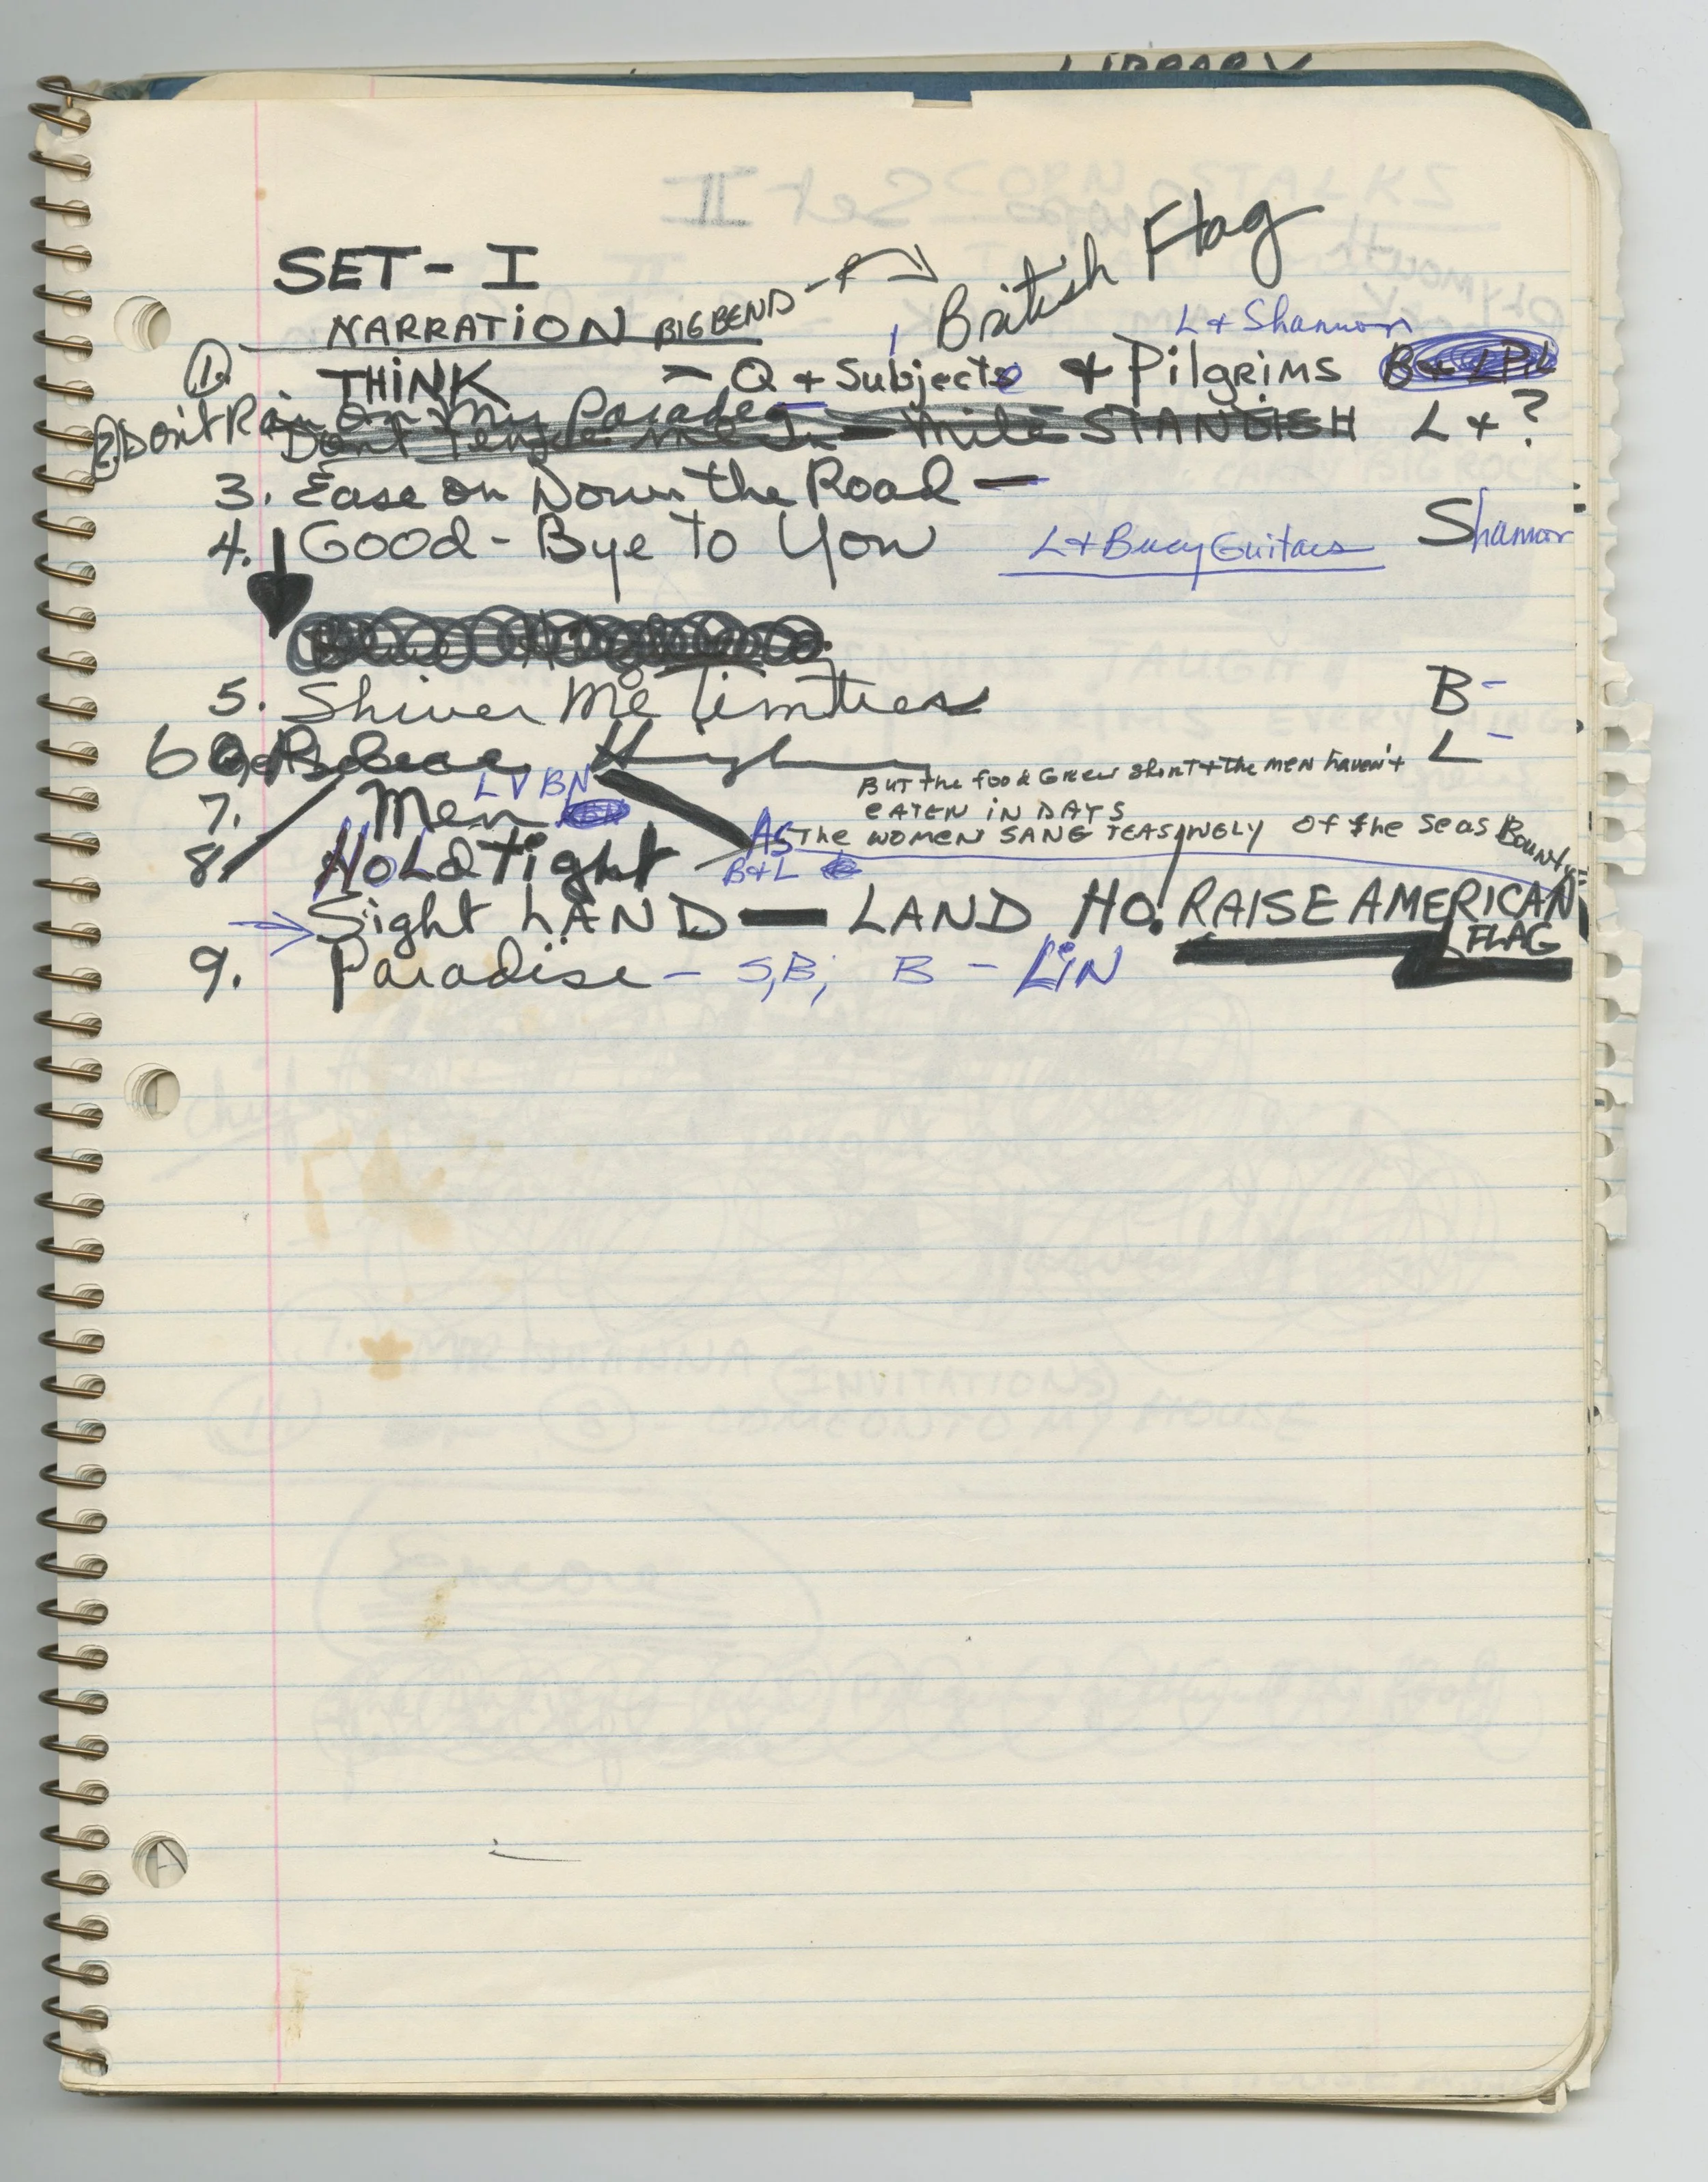 LIBRARY
SET - I
NARRATION BIG BEND → British Flag
L + Shannon
1. THINK – Q + Subjects + Pilgrims
2. Don't Rain On My Parade
Don't Fence me In – Mile STANDISH L + ?
3. Ease on Down the Road —
4. Good-Bye to You L + Bucy Guitars Shannon
5. Shiver Me Timbers B -
6 L -
BUT the food Grew short + the men haven't
7. Men L V BN EATEN IN DAYS
AS The WOMEN SANG TEASINGLY of the Seas Bounty
8. Hold Tight B+L
→ Sight LAND — LAND HO! RAISE AMERICAN
FLAG
9. Paradise – S, B; B – LiN